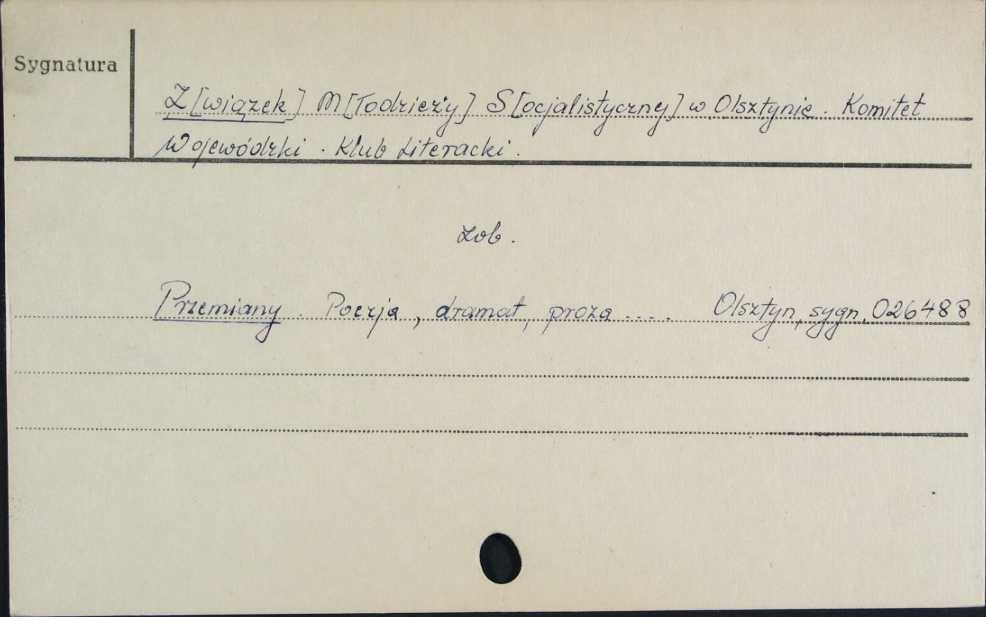 Sygnatura
Z[wiązek] M[łodzieży] S[ocjalistycznej] w Olsztynie. Komitet
Wojewódzki. Klub Literacki.
zob.
Przemiany. Poezja, dramat, proza .... Olsztyn, sygn. 026488